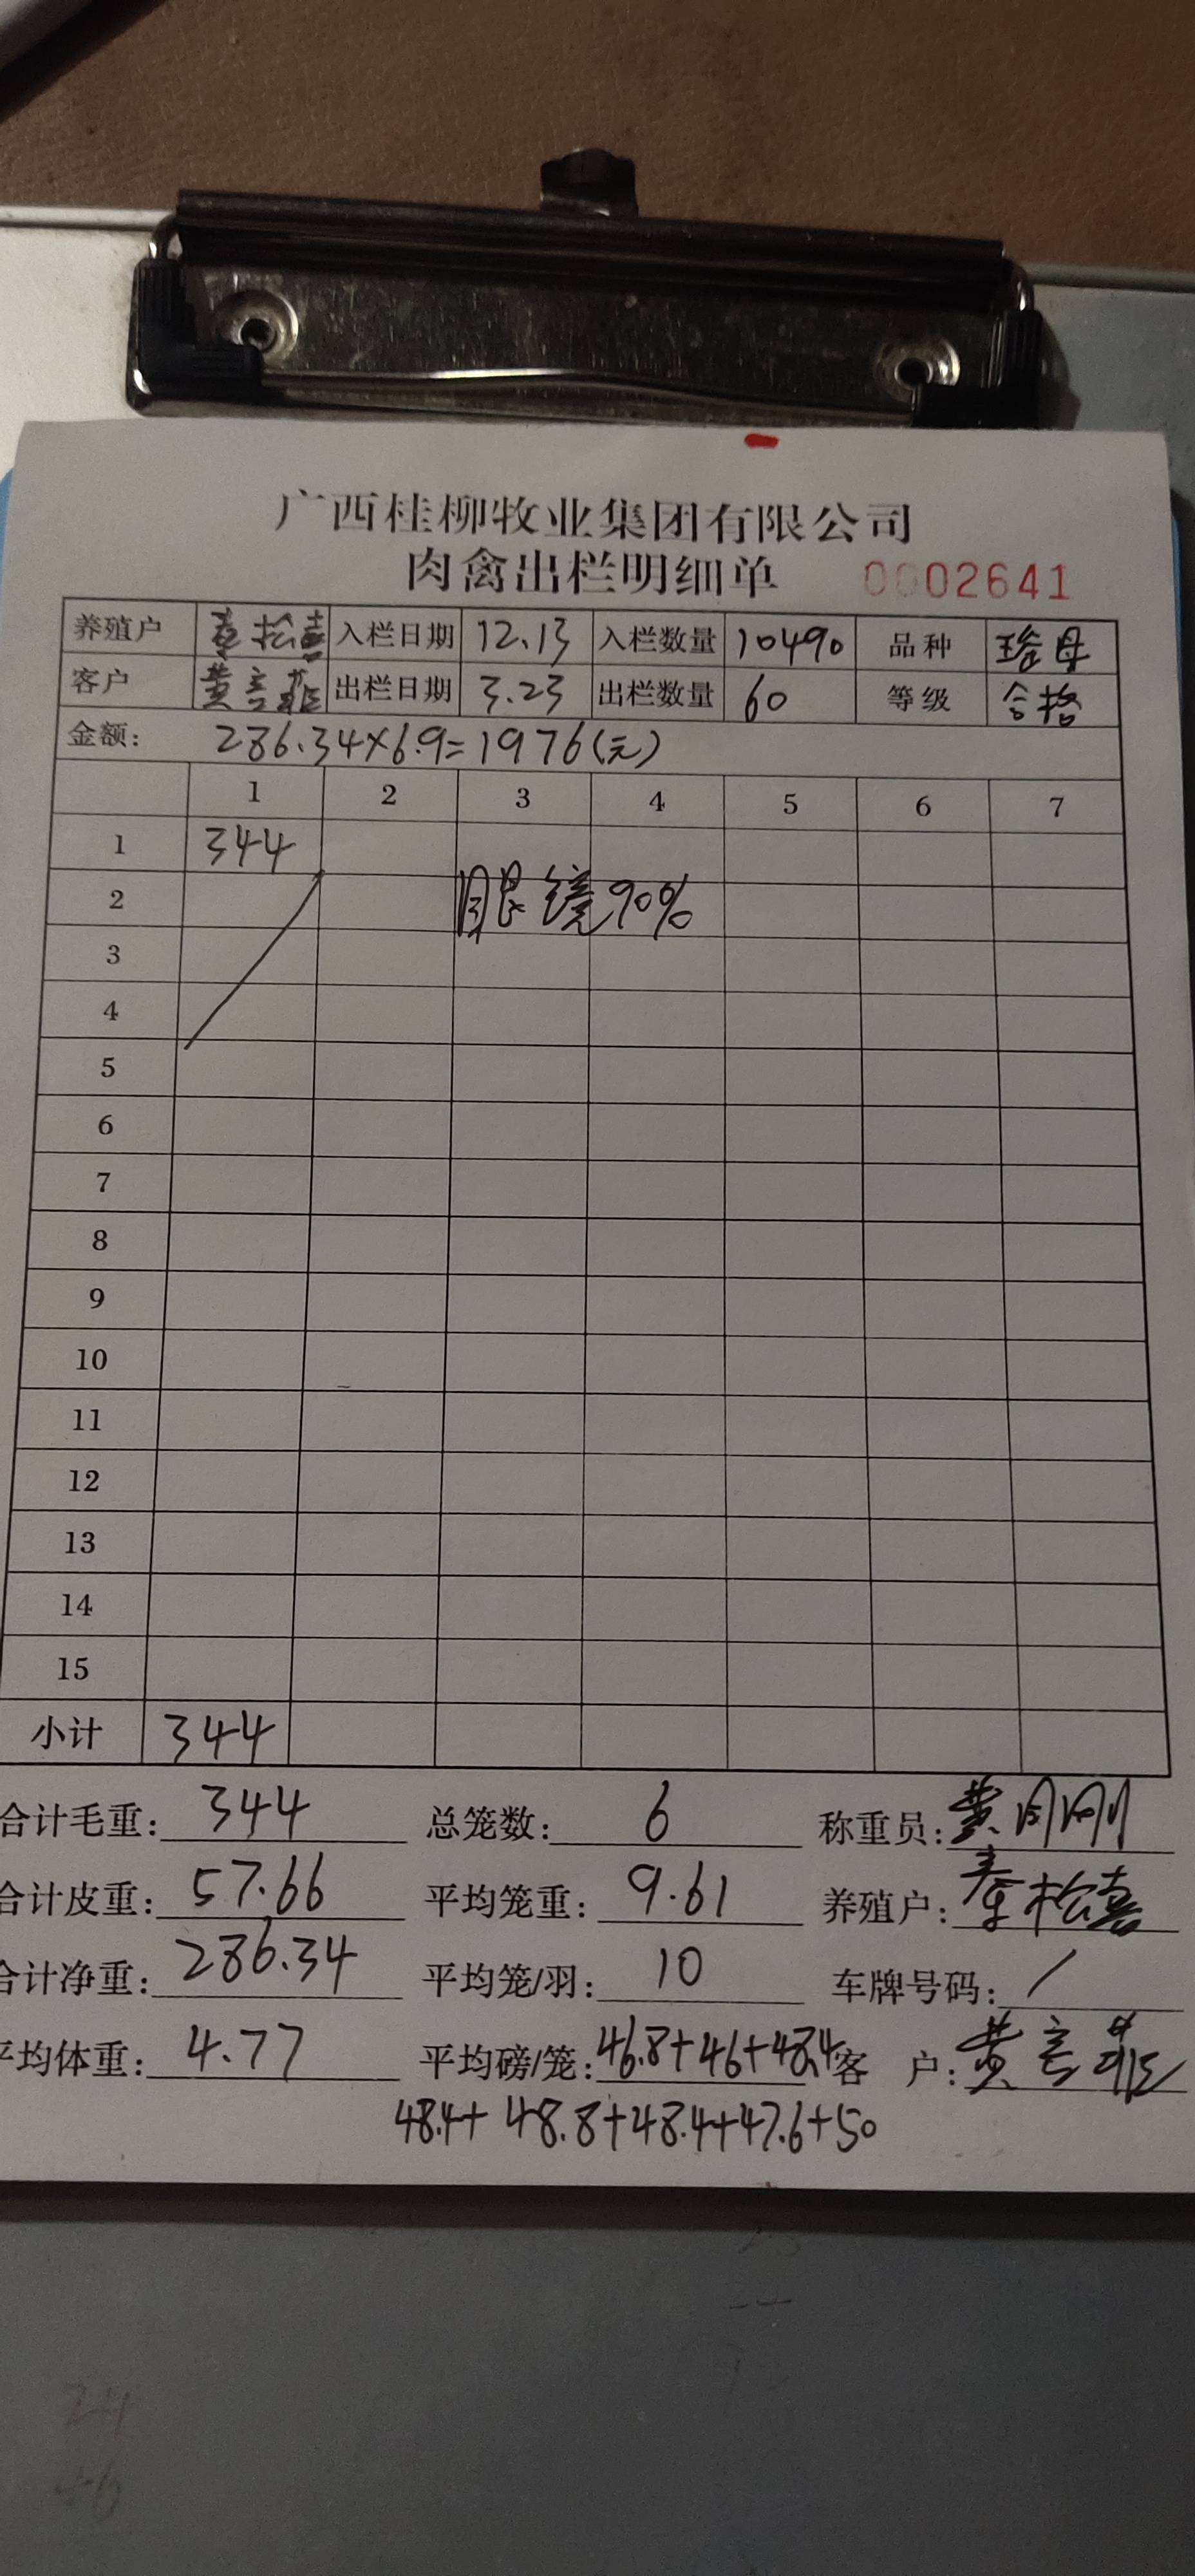 广西桂柳牧业集团有限公司
肉禽出栏明细单 0002641
养殖户 秦松嘉 入栏日期 12.13 入栏数量 10490 品种 瑶母
客户 黄言菲 出栏日期 3.23 出栏数量 60 等级 合格
金额: 286.34×6.9=1976(元)
1 2 3 4 5 6 7
1 344
2 眼镜90%
3
4
5
6
7
8
9
10
11
12
13
14
15
小计 344
合计毛重: 344 总笼数: 6 称重员: 黄月刚
合计皮重: 57.66 平均笼重: 9.61 养殖户: 秦松嘉
合计净重: 286.34 平均笼/羽: 10 车牌号码: /
平均体重: 4.77 平均磅/笼: 46.8+46+48.4 客 户: 黄言菲
48.4+48.8+48.4+47.6+50